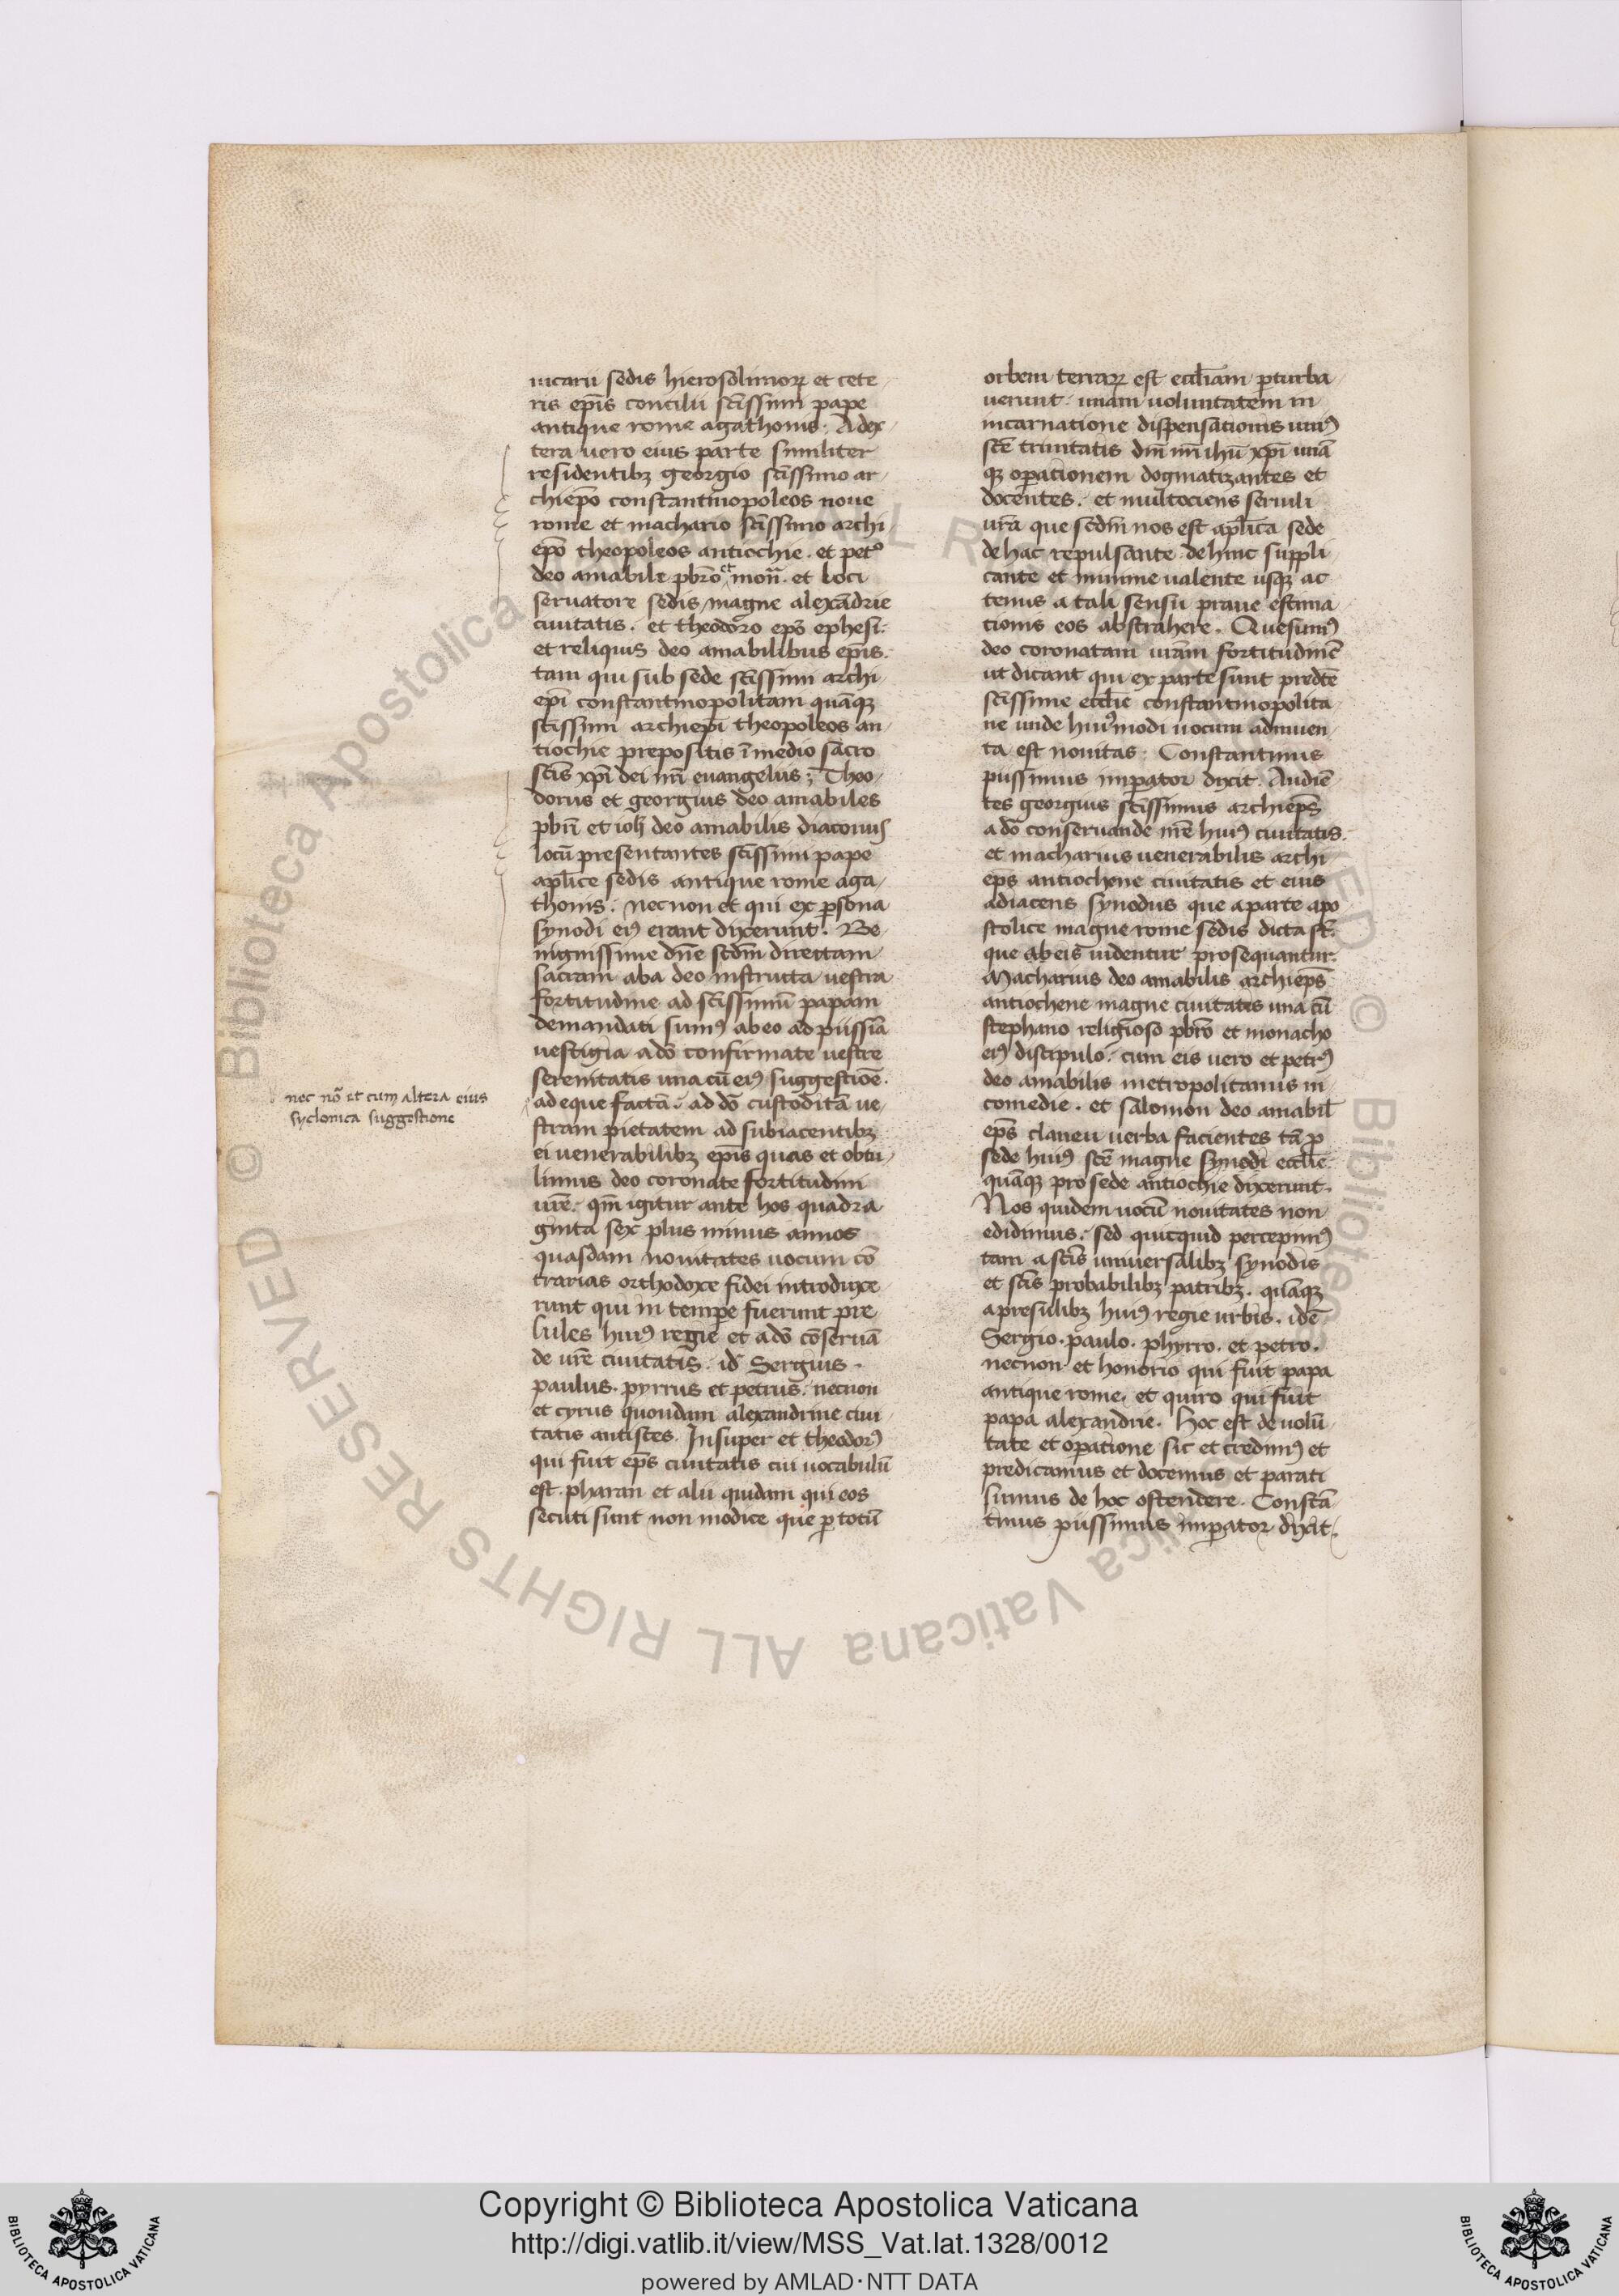 uicarii sedis hierosolimoꝝ et cete
ris ep̄is concilii sc̄issimi pape
antique rome agathonis. A dex
tera uero eius parte similiter
residentibꝫ georgio sc̄issimo ar
chiep̄o constantinopoleos noue
rome et machario sc̄issimo archi
ep̄o theopoleos antiochie. et pet°
deo amabile pb̄ro et mon̄. et loci
seruatore sedis magne alexādrie
ciuitatis. et theodoro ep̄o ephesi.
et reliquis deo amabilibus ep̄is.
tam qui sub sede sc̄issimi archi
ep̄i constantinopolitani quāqꝫ
sc̄issimi archiep̄i theopoleos an
tiochie prepositis ī medio sacro
sc̄is xp̄i dei nr̄i euangeliis; Theo
dorus et georgius deo amabiles
pb̄ri et ioh̄ deo amabilis diaconus
locū presentantes sc̄issimi pape
ap̄lice sedis antique rome aga
thonis. necnon et qui ex ꝑsona
synodi eiꝰ erant dixerunt. Be
nignissime dn̄e scd̄m directam
sacram aba deo instructa uestra
fortitudine ad sc̄issimū papam
demandati sumꝰ ab eo ad piissīa
uestigia a dō confirmate uestre
serenitatis una cū eiꝰ suggestiōe.
ad eque factā. ad dō custoditā ue
stram pietatem ad subiacentibꝫ
ei uenerabilibꝫ ep̄is quas et obtu
limus deo coronate fortitudini
ur̄e. qm̄ igitur ante hos quadra
ginta sex plus minus annos
quasdam nouitates uocum cō
trarias orthodoxe fidei introduxe
runt qui in temꝑe fuerunt pre
sules huiꝰ regie et a dō cōseruā
de ur̄e ciuitatis. id̄ Sergius.
paulus. pyrrus et petrus. necnon
et cyrus quondam alexandrine ciui
tatis antistes. Insuper et theodorꝰ
qui fuit ep̄s ciuitatis cui uocabulū
est pharan et alii quidam qui eos
secuti sunt non modice que ꝑ totū
nec nō et cum altera eius
syclonica suggestione
orbem terraꝝ est eccl̄iam ꝑturba
uerunt. unam uoluntatem in
incarnatione dispensationis uniꝰ
sc̄e trinitatis dn̄i nr̄i ihū xp̄i unā
qꝫ oꝑationem dogmatizantes et
docentes. et multociens seruili
ur̄a que scd̄m nos est ap̄lica sede
de hac repulsante dehinc suppli
cante et minime ualente usqꝫ ac
tenus a tali sensu praue estima
tionis eos abstrahere. Quesumꝰ
deo coronatam ur̄am fortitudinē
ut dicant qui ex parte sunt predc̄e
sc̄issime eccl̄ie constantinopolita
ne unde huiꝰmodi uocum adinuen
ta est nouitas. Constantinus
piissimus imꝑator dixit. Audiē
tes georgius sc̄issimus archiep̄s
a dō conseruande nr̄e huiꝰ ciuitatis.
et macharius uenerabilis archi
ep̄s antiochene ciuitatis et eius
adiacens synodus que a parte apo
stolice magne rome sedis dicta st̄.
que ab eis uidentur prosequantur.
Macharius deo amabilis archiep̄s
antiochene magne ciuitatis una cū
stephano religioso pb̄ro et monacho
eiꝰ discipulo. cum eis uero et petrꝰ
deo amabilis metropolitanus ni
comedie. et salomon deo amabil̄
ep̄s claneu uerba facientes tā ꝓ
sede huiꝰ sc̄e magne synodi eccl̄ie
quāqꝫ pro sede antiochie dixerunt.
Nos quidem uocū nouitates non
edidimus. sed quicquid percepimꝰ
tam a sc̄is uniuersalibꝫ synodis
et sc̄is probabilibꝫ patribꝫ. quāqꝫ
a presulibꝫ huiꝰ regie urbis. idē
Sergio. paulo. phyrro. et petro.
necnon et honorio qui fuit papa
antique rome. et quiro qui fuit
papa alexandrie. Hoc est de uolū
tate et oꝑatione sic et credimꝰ et
predicamus et docemus et parati
sumus de hoc ostendere. Constā
tinus piissimus imꝑator dixit.
© Biblioteca Apostolica Vaticana ALL RIGHTS RESERVED
Copyright © Biblioteca Apostolica Vaticana
http://digi.vatlib.it/view/MSS_Vat.lat.1328/0012
powered by AMLAD·NTT DATA
BIBLIOTECA APOSTOLICA VATICANA
BIBLIOTECA APOSTOLICA VATICANA